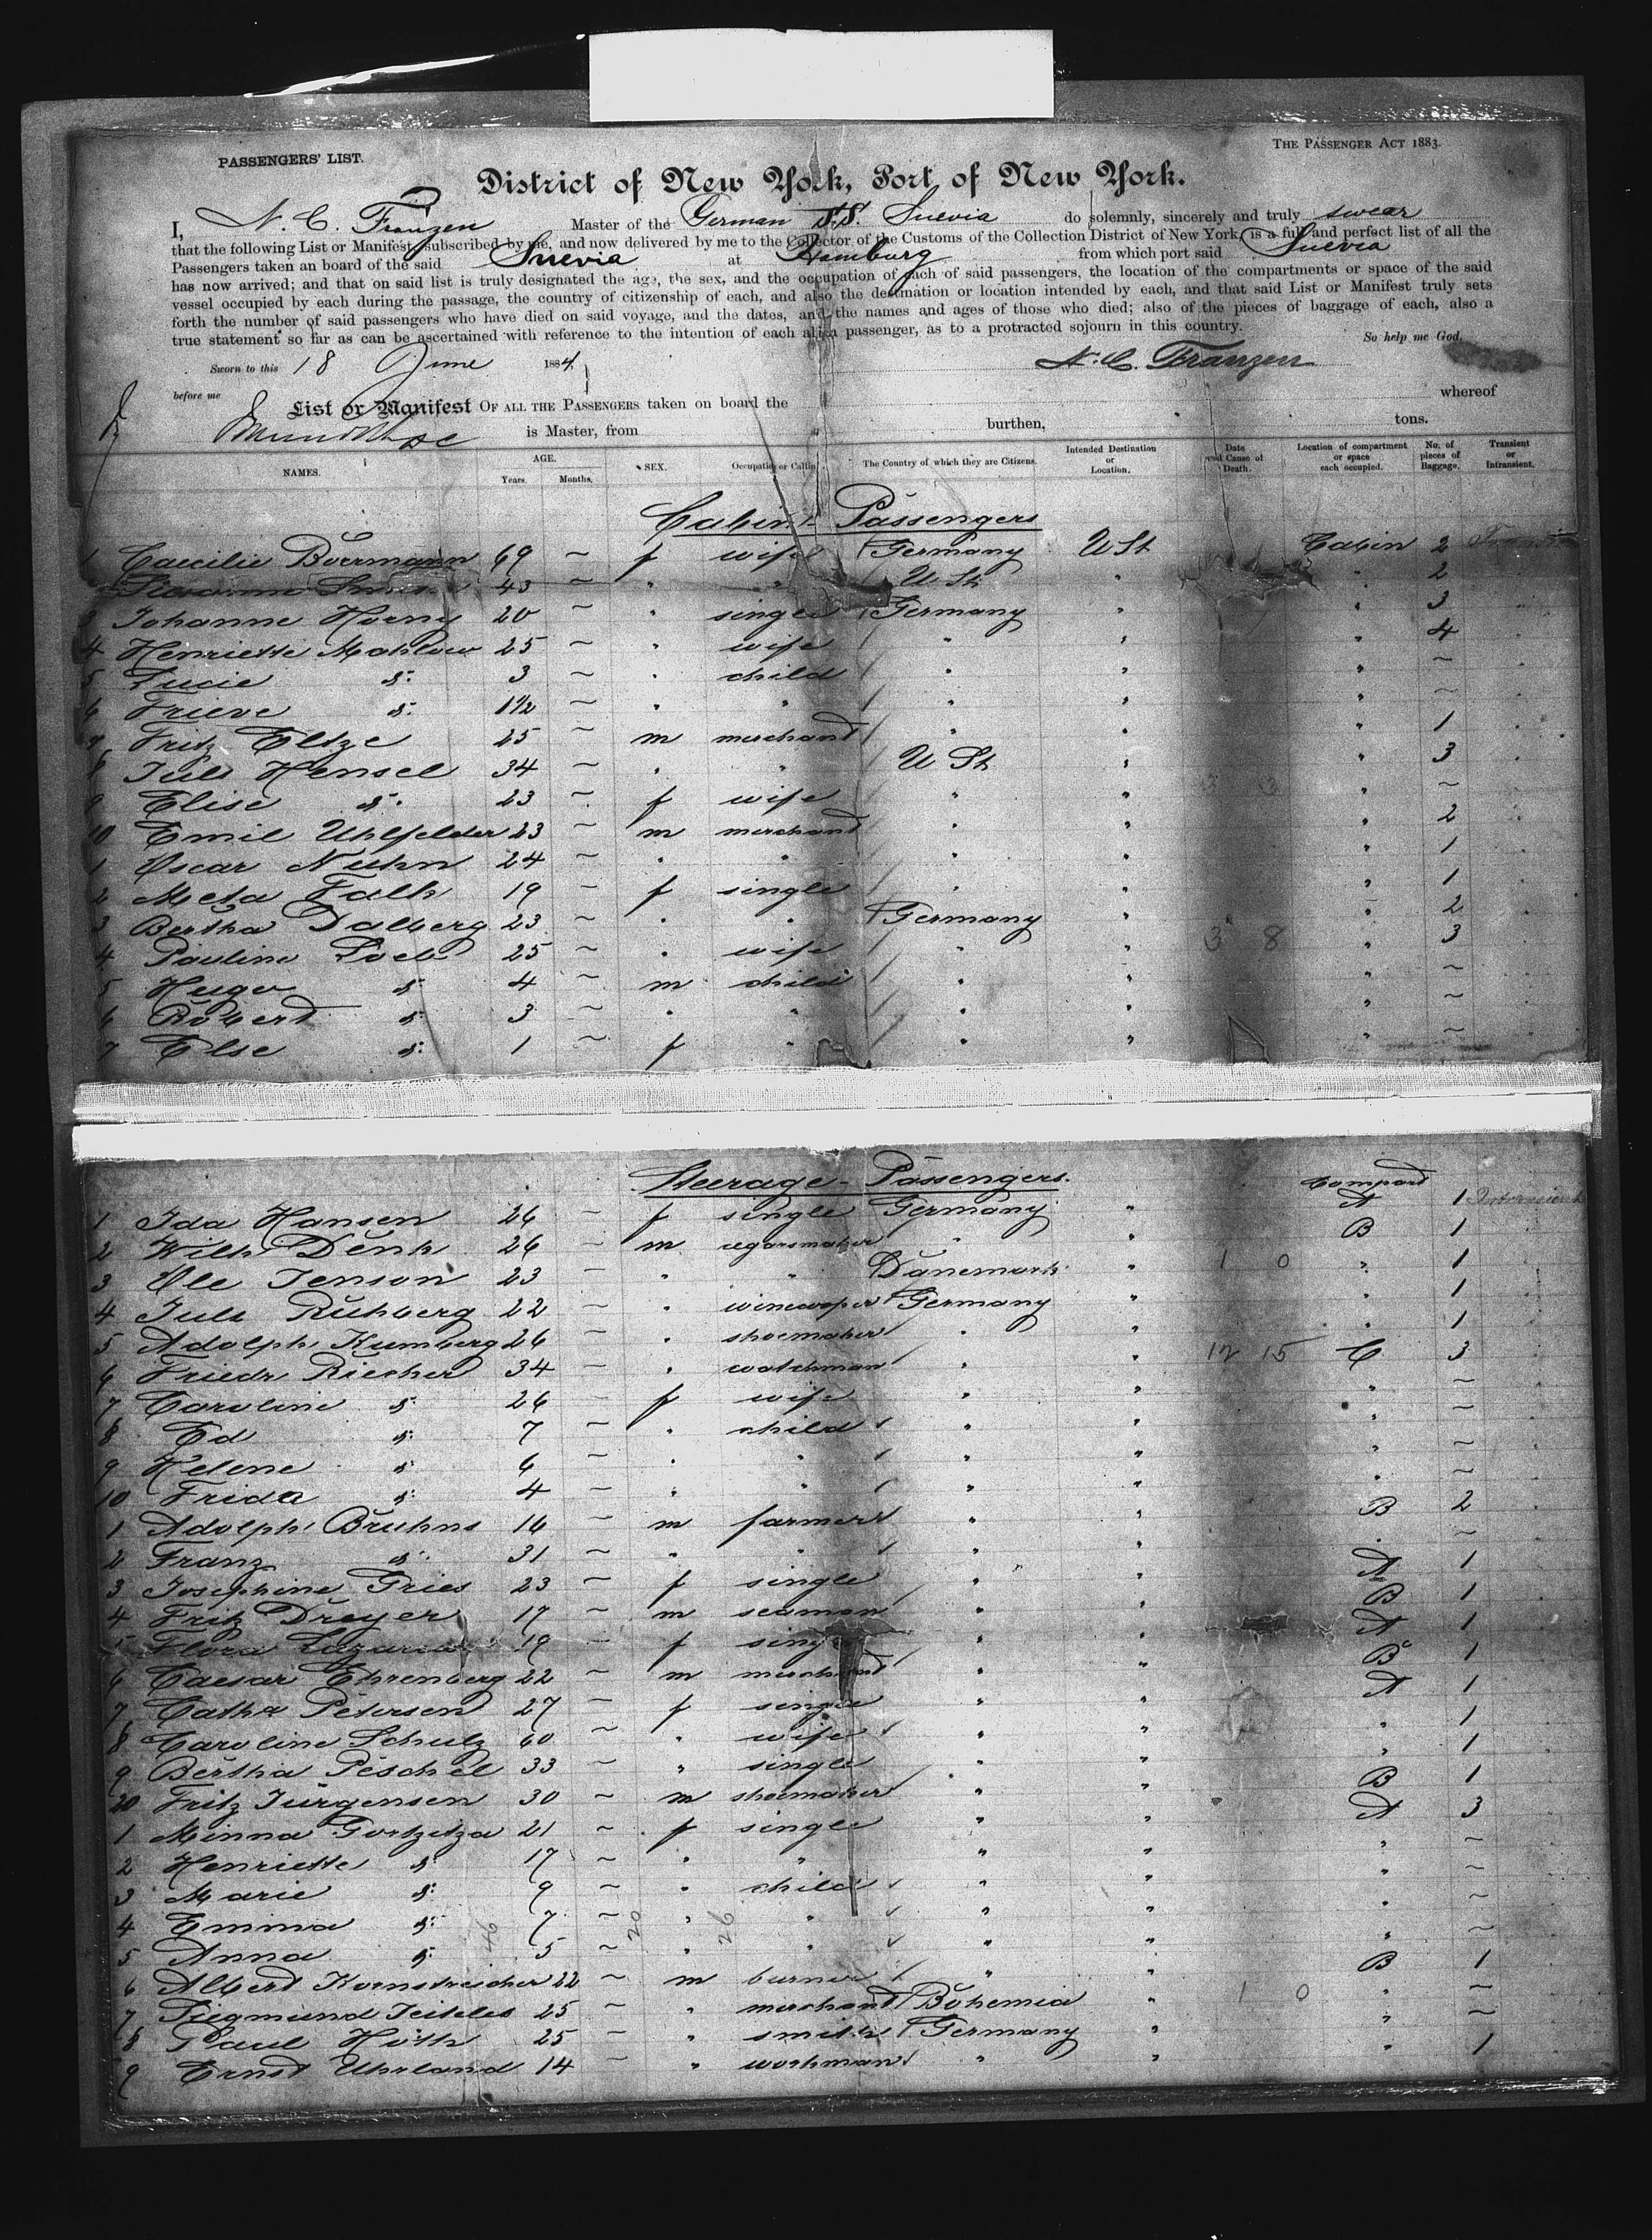 PASSENGERS' LIST.
THE PASSENGER ACT 1883.
District of New York, Port of New York.
I, N. C. Franzen Master of the German S.S. Suevia do solemnly, sincerely and truly swear
that the following List or Manifest, subscribed by me, and now delivered by me to the Collector of the Customs of the Collection District of New York, is a full and perfect list of all the
Passengers taken an board of the said Suevia at Hamburg from which port said Suevia
has now arrived; and that on said list is truly designated the age, the sex, and the occupation of each of said passengers, the location of the compartments or space of the said
vessel occupied by each during the passage, the country of citizenship of each, and also the destination or location intended by each, and that said List or Manifest truly sets
forth the number of said passengers who have died on said voyage, and the dates, and the names and ages of those who died; also of the pieces of baggage of each, also a
true statement so far as can be ascertained with reference to the intention of each alien passenger, as to a protracted sojourn in this country. So help me God.
Sworn to this 18 June 1884 N. C. Franzen
before me whereof
List or Manifest OF ALL THE PASSENGERS taken on board the
is Master, from burthen, tons.
NAMES. AGE. Years. Months. SEX. Occupation or Calling. The Country of which they are Citizens. Intended Destination or Location. Date and Cause of Death. Location of compartment or space each occupied. No. of pieces of Baggage. Transient or Intransient.
Cabin - Passengers
1 Caecilie Boermann 69 ~ f wife Germany U St Cabin 2
43 ~ " " U St " " 2
3 Johanne Horny 20 ~ " single Germany " " 3
4 Henriette Mahlow 25 ~ " wife " " " 4
5 Lucie d: 3 ~ " child " " " ~
6 Frieve d: 1 1/2 ~ " " " " " ~
7 Fritz Eltze 25 ~ m merchand " " " 1
8 Juls Hensel 34 ~ " " U St " " 3
9 Elise d: 23 ~ f wife " " 3 3 " ~
10 Emil Uhlfelder 23 ~ m merchand " " " 2
1 Oscar Nuhn 24 ~ " " " " " 1
2 Meta Falk 19 ~ f single " " " 1
3 Bertha Dalberg 23 ~ " " Germany " " 2
4 Pauline Loeb 25 ~ " wife " " 3 8 " 3
5 Hugo d: 4 ~ m child " " " ~
6 Robert d: 3 ~ " " " " " ~
7 Else d: 1 ~ f " " " " ~
Steerage - Passengers.
Compart
1 Ida Hansen 26 ~ f single Germany " A 1
2 Wilh. Denk 26 ~ m cigarsmaker " " B 1
3 Ole Jenson 23 ~ " " Danemark " 1 0 " 1
4 Juls Ruhberg 22 ~ " winecooper Germany " " 1
5 Adolph Kumberg 26 ~ " shoemaker " " " 1
6 Friedr. Riecher 34 ~ " watchman " " 12 15 C 3
7 Caroline d: 26 ~ f wife " " " ~
8 Ed d: 7 ~ " child " " " ~
9 Helene d: 6 ~ " " " " " ~
10 Frida d: 4 ~ " " " " " ~
1 Adolph Bruhns 16 ~ m farmer " " B 2
2 Franz d: 31 ~ " " " " " ~
3 Josephine Gries 23 ~ f single " " A 1
4 Fritz Dreyer 17 ~ m seaman " " B 1
5 Flora Lazarus 19 ~ f single " " A 1
6 Caesar Ehrenberg 22 ~ m merchand " " B 1
7 Catha Petersen 27 ~ f single " " A 1
8 Caroline Schulz 60 ~ " wife " " " 1
9 Bertha Peschel 33 ~ " single " " " 1
20 Fritz Jürgensen 30 ~ m shoemaker " " B 1
1 Minna Gortzitza 21 ~ f single " " A 3
2 Henriette d: 17 ~ " " " " " ~
3 Marie d: 9 ~ " child " " " ~
4 Emma d: 7 ~ " " " " " ~
5 Anna d: 5 ~ " " " " " ~
46 20 26
6 Albert Kornstreicher 22 ~ m burner " " B 1
7 Siegmund Teiteles 25 ~ " merchand Bohemia " 1 0 " ~
8 Paul Hoth 25 ~ " smith Germany " " ~
9 Ernst Uhrland 14 ~ " workman " " " 1